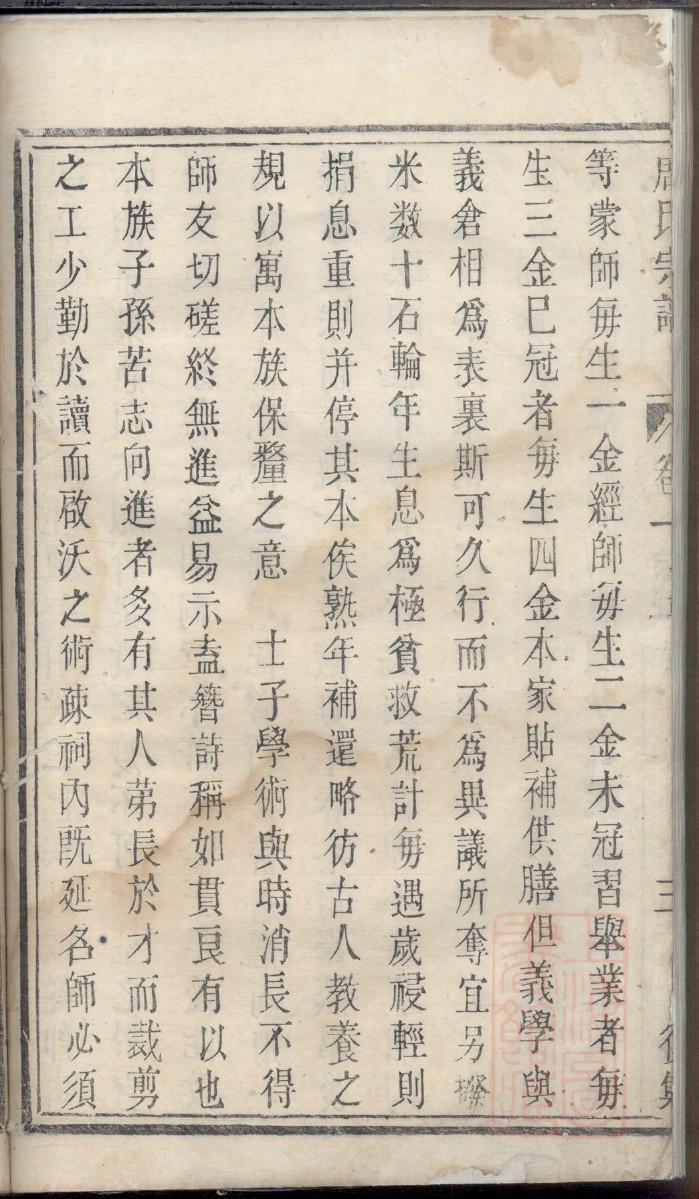 周氏宗譜 卷一 三
等蒙師每生一金經師每生二金未冠習舉業者每
生三金已冠者每生四金本家貼補供膳但義學與
義倉相爲表裏斯可久行而不爲異議所奪宜另撥
米数十石輪年生息爲極貧救荒計每遇歲祲輕則
捐息重則并停其本俟熟年補還略彷古人教養之
規以寓本族保釐之意　士子學術與時消長不得
師友切磋終無進益易示盍簪詩稱如貫良有以也
本族子孫苦志向進者多有其人苐長於才而裁剪
之工少勤於讀而啟沃之術疎祠內既延名師必須